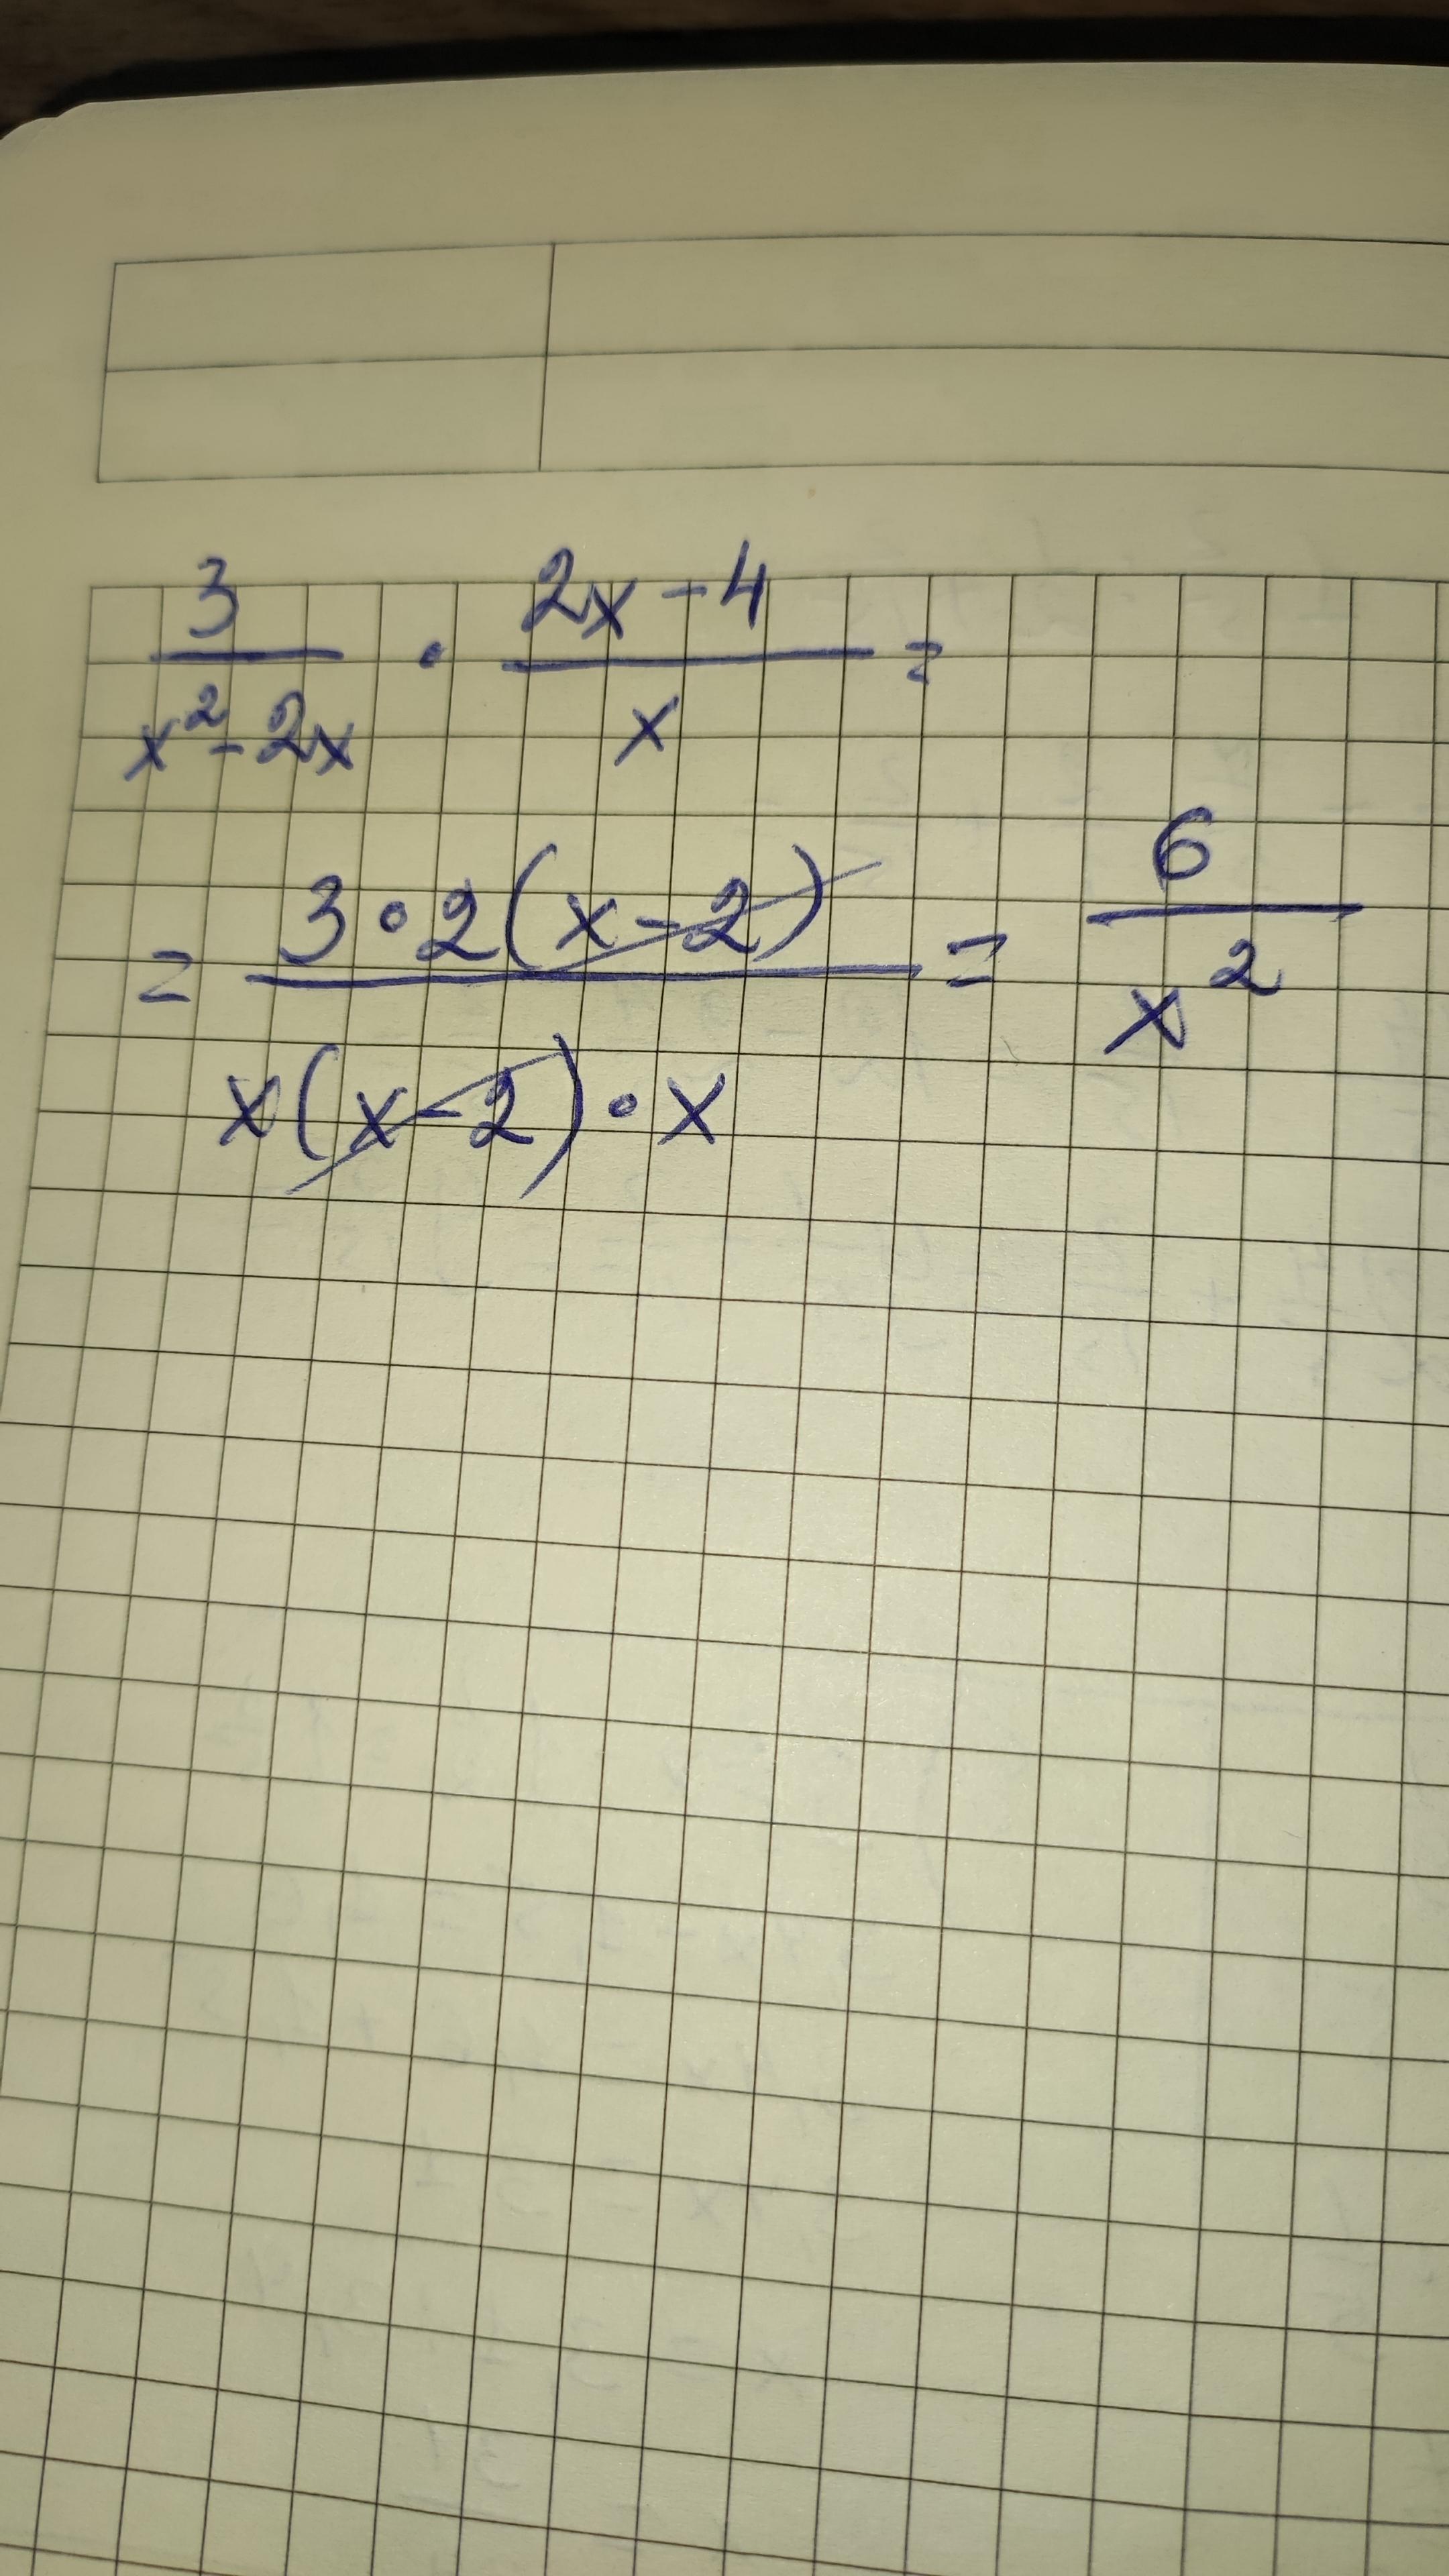 3/(x²-2x) · (2x-4)/x =
= (3·2(x-2))/(x(x-2)·x) = 6/x²